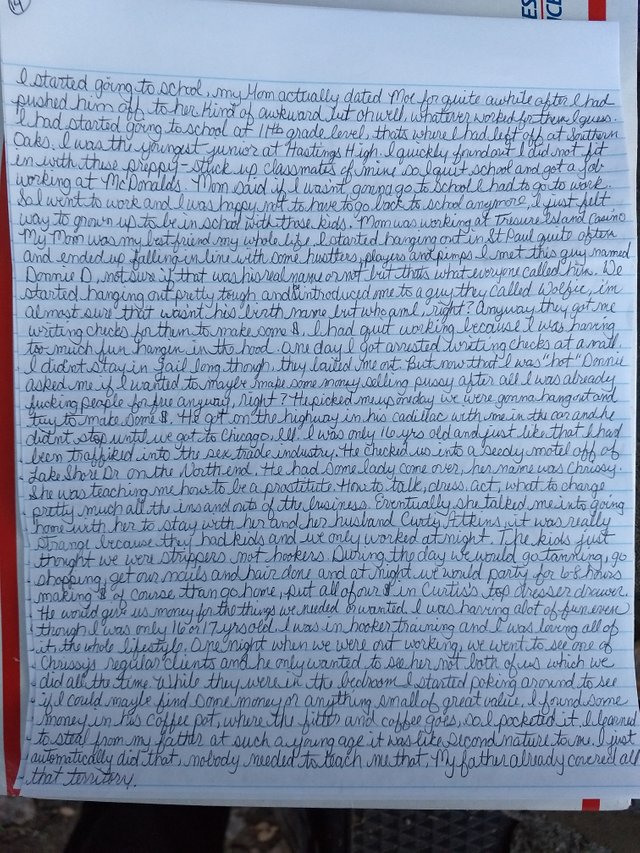 14
ES
ICE
I started going to school, my Mom actually dated Moe for quite awhile after I had
pushed him off to her Kind of awkward but oh well, whatever worked for them I guess.
I had started going to school at 11th grade level, thats where I had left off at Southern
Oaks. I was the youngest junior at Hastings High. I quickly found out I did not fit
in with these preppy-stuck up classmates of mine so I quit school and got a job
working at McDonalds. Mom said if I wasn't gonna go to school I had to go to work.
So I went to work and I was happy not to have to go back to school anymore, I just felt
way to grown up to be in school with those kids. Mom was working at Tresure Island casino
My Mom was my best friend my whole life. I started hanging out in St Paul quite often
and ended up falling in line with some hustlers, players and pimps. I met this guy named
Donnie D, not sure if that was his real name or not but thats what everyone called him. We
started hanging out pretty tough and introduced me to a guy they called Wolfie, im
almost sure that wasn't his birth name but who am I, right? Anyway they got me
writing checks for them to make some $. I had quit working because I was having
too much fun hangin in the hood. One day I got arrested writing checks at a mall.
I didn't stay in jail long though, they bailed me out. But now that I was "hot" Donnie
asked me if I wanted to maybe make some money selling pussy after all I was already
fucking people for free anyway, right? He picked me up one day we were gonna hang out and
try to make some $. He got on the highway in his cadillac with me in the car and he
didnt stop until we got to Chicago, Ill. I was only 16 yrs old and just like that I had
been traffiked into the sex trade industry. He checked us into a seedy motel off of
Lake Shore Dr on the North end. He had some lady come over, her name was Chrissy.
She was teaching me how to be a prostitute. How to talk, dress, act, what to charge
pretty much all the ins and outs of the business. Eventually she talked me into going
home with her to stay with her and her husband Curty Atkins, it was really
strange because they had kids and we only worked at night. The kids just
thought we were strippers not hookers. During the day we would go tanning, go
shopping, get our nails and hair done and at night we would party for 6-8 hours
making $ of course than go home, put all of our $ in Curtis's top dresser drawer.
He would give us money for the things we needed or wanted. I was having alot of fun even
though I was only 16 or 17 yrs old. I was in hooker training and I was loving all of
it, the whole lifestyle. One night when we were out working, we went to see one of
Chrissy's regular clients and he only wanted to see her not both of us which we
did all the time. While they were in the bedroom I started poking around to see
if I could maybe find some money or anything small of great value, I found some
money in his coffee pot, where the filter and coffee goes, so I pocketed it. I learned
to steal from my father at such a young age it was like second nature to me. I just
automatically did that, nobody needed to teach me that. My father already covered all
that territory.